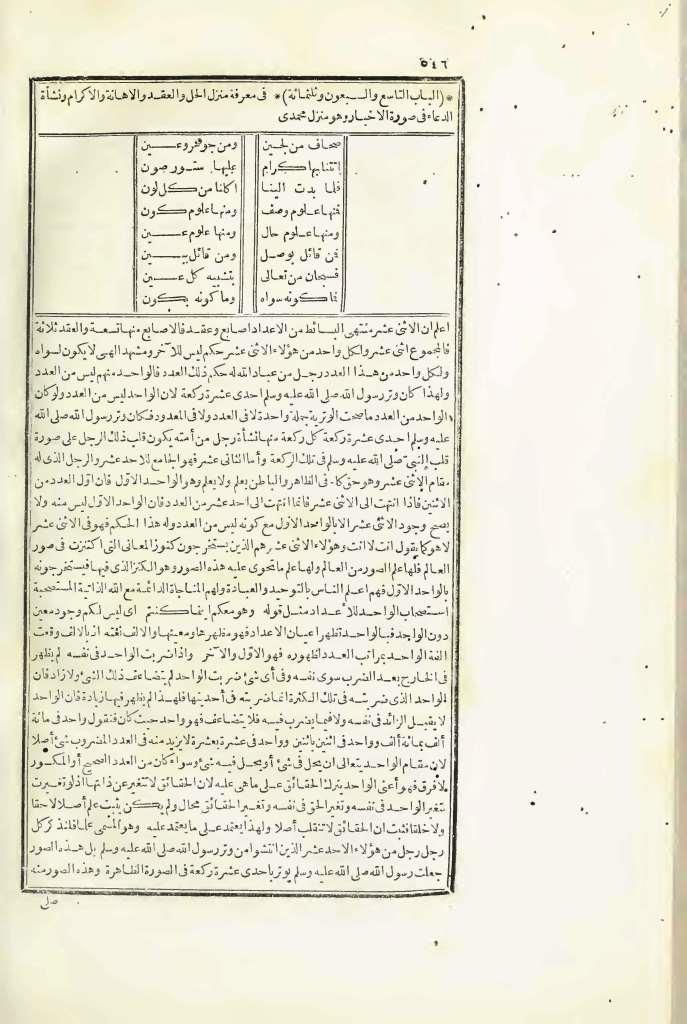 ٥٤٦
* (الباب التاسع والسبعون وثلثمائة) * فى معرفة منزل الحل والعقد والاهانة والاكرام ونشأة
الدعاء فى صورة الاخبار وهو منزل محمدى
صحاف من لجين ومن جو وعين
اتتنا بها كرام عليها ستور صون
فلما بدت الينا اكلنا من كل لون
فمنها علوم وصف ومنها علوم كون
ومنها علوم حال ومنها علوم عين
فمن قائل بوصل ومن قائل ببين
فسبحان من تعالى بتشبيه كل عين
فما كونه سواه وما كونه بكون
اعلم ان الاثنى عشر منتهى البسائط من الاعداد اصابع وعقد فالاصابع منها تسعة والعقد ثلاثة
فالمجموع اثنى عشر ولكل واحد من هؤلاء الاثنى عشر حكم ليس للآخر ومشهد الهى لا يكون لسواه
ولكل واحد من هذا العدد رجل من عباد الله له حكم ذلك العدد فالواحد منهم ليس من العدد
ولهذا كان وتر رسول الله صلى الله عليه وسلم احدى عشرة ركعة لان الواحد ليس من العدد ولو كان
الواحد من العدد ما صحت الوترية جملة واحدة لا فى العدد ولا فى المعدود فكان وتر رسول الله صلى الله
عليه وسلم احدى عشرة ركعة كل ركعة منها نشأة رجل من أمته يكون قلب ذلك الرجل على صورة
قلب النبى صلى الله عليه وسلم فى تلك الركعة وأما الثانى عشر فهو الجامع للاحد عشر والرجل الذى له
مقام الاثنى عشر وهو حق كله فى الظاهر والباطن يعلم ولا يعلم وهو الواحد الاول فان اول العدد من
الاثنين فاذا انتهت الى الاثنى عشر فانما انتهت الى احد عشر من العدد فان الواحد الاول ليس منه ولا
يصح وجود الاثنى عشر الا بالواحد الاول مع كونه ليس من العدد وله هذا الحكم فهو فى الاثنى عشر
لا هو كما يقول انت لا انت وهؤلاء الاثنى عشر هم الذين يستخرجون كنوز المعانى التى اكتنزت فى صور
العالم فلها علم الصور من العالم ولها علم ما تحوى عليه هذه الصور وهو الكنز الذى فيها فيستخرجونه
بالواحد الاول فهم اعلم الناس بالتوحيد والعبادة ولهم المناجاة الدائمة مع الله الذاتية المستصحبة
استصحاب الواحد للأعداد مثل قوله وهو معكم اينما كنتم اى ليس لكم وجود معين
دون الواحد فبالواحد تظهر اعيان الاعداد فهو مظهرها ومفنيها والالف نعته اذ بالالف وقعت
الفة الواحد بمراتب العدد لظهوره فهو الاول والآخر واذا ضربت الواحد فى نفسه لم يظهر
فى الخارج بعد الضرب سوى نفسه وفى أى شئ ضربت الواحد لم يتضاعف ذلك الشئ ولا زاد فان
الواحد الذى ضربته فى تلك الكثرة انما ضربته فى أحديتها فلهذا لم يظهر فيها زيادة فان الواحد
لا يقبل الزائد فى نفسه ولا فيما يضرب فيه فلا يتضاعف فهو واحد حيث كان فنقول واحد فى مائة
ألف بمائة ألف وواحد فى اثنين باثنين وواحد فى عشرة بعشرة لا يزيد منه فى العدد المضروب شئ أصلا
لان مقام الواحد يتعالى ان يحل فى شئ أو يحل فيه شئ وسواء كان من العدد الصحيح أو المكسور
لا فرق فهو أعنى الواحد يترك الحقائق على ما هى عليه لان الحقائق لا تتغير عن ذاتها اذ لو تغيرت
لتغير الواحد فى نفسه وتغير الحق فى نفسه وتغير الحقائق محال ولم يكن يثبت علم أصلا لا حقا
ولا خلقا فثبت ان الحقائق لا تنقلب أصلا ولهذا يعتمد على ما يعتمد عليه وهو المسمى علما فلنذكر كل
رجل رجل من هؤلاء الاحد عشر الذين انتشوا من وتر رسول الله صلى الله عليه وسلم بل هذه الصور
جعلت رسول الله صلى الله عليه وسلم يوتر باحدى عشرة ركعة فى الصورة الظاهرة وهذه الصور منه
صلى